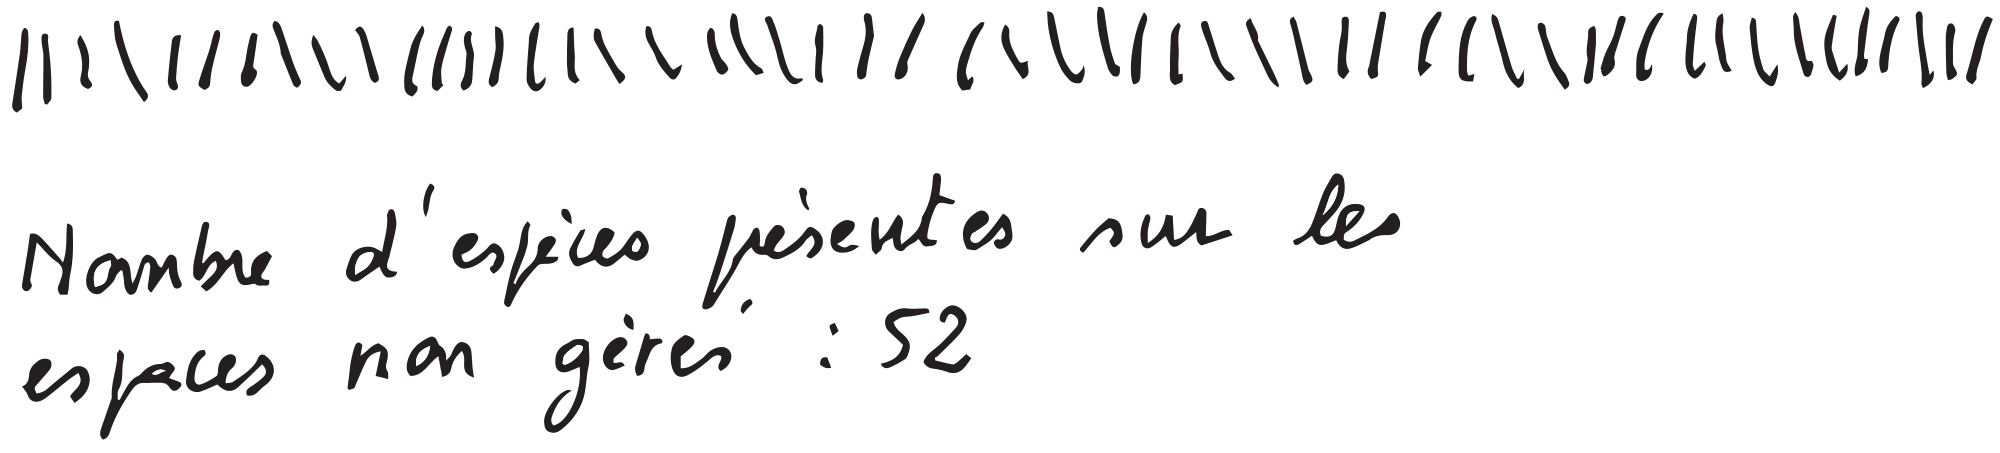 Nombre d'espèces présentes sur les
espaces non gérés : 52